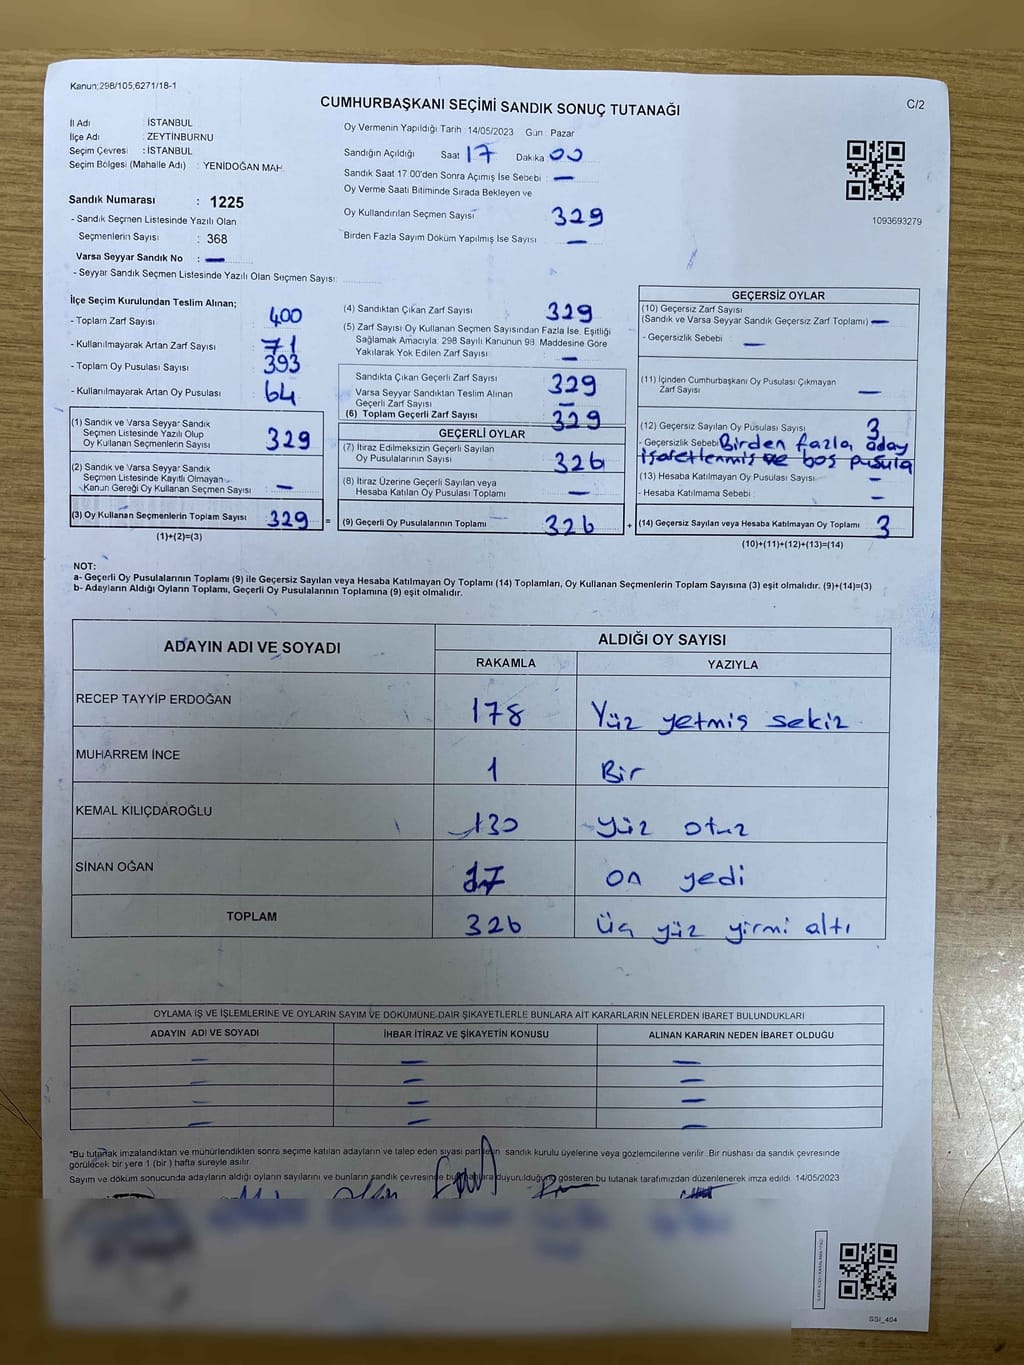 Kanun;298/105,6271/18-1
CUMHURBAŞKANI SEÇİMİ SANDIK SONUÇ TUTANAĞI
C/2
İl Adı : İSTANBUL
İlçe Adı : ZEYTİNBURNU
Seçim Çevresi : İSTANBUL
Seçim Bölgesi (Mahalle Adı) : YENİDOĞAN MAH.
Sandık Numarası : 1225
- Sandık Seçmen Listesinde Yazılı Olan
Seçmenlerin Sayısı : 368
Varsa Seyyar Sandık No : —
- Seyyar Sandık Seçmen Listesinde Yazılı Olan Seçmen Sayısı:
Oy Vermenin Yapıldığı Tarih :14/05/2023 Gün : Pazar
Sandığın Açıldığı Saat 17 Dakika 00
Sandık Saat 17:00'den Sonra Açımış İse Sebebi : —
Oy Verme Saati Bitiminde Sırada Bekleyen ve
Oy Kullandırılan Seçmen Sayısı 329
Birden Fazla Sayım Döküm Yapılmış İse Sayısı —
1093693279
İlçe Seçim Kurulundan Teslim Alınan;
- Toplam Zarf Sayısı 400
- Kullanılmayarak Artan Zarf Sayısı 71
- Toplam Oy Pusulası Sayısı 393
- Kullanılmayarak Artan Oy Pusulası 64
(1) Sandık ve Varsa Seyyar Sandık
Seçmen Listesinde Yazılı Olup
Oy Kullanan Seçmenlerin Sayısı 329
(2) Sandık ve Varsa Seyyar Sandık
Seçmen Listesinde Kayıtlı Olmayan
Kanun Gereği Oy Kullanan Seçmen Sayısı —
(3) Oy Kullanan Seçmenlerin Toplam Sayısı 329 =
(1)+(2)=(3)
(4) Sandıktan Çıkan Zarf Sayısı 329
(5) Zarf Sayısı Oy Kullanan Seçmen Sayısından Fazla İse, Eşitliği
Sağlamak Amacıyla, 298 Sayılı Kanunun 98. Maddesine Göre
Yakılarak Yok Edilen Zarf Sayısı —
Sandıkta Çıkan Geçerli Zarf Sayısı 329
Varsa Seyyar Sandıktan Teslim Alınan
Geçerli Zarf Sayısı —
(6) Toplam Geçerli Zarf Sayısı 329
GEÇERLİ OYLAR
(7) İtiraz Edilmeksizin Geçerli Sayılan
Oy Pusulalarının Sayısı 326
(8) İtiraz Üzerine Geçerli Sayılan veya
Hesaba Katılan Oy Pusulası Toplamı —
(9) Geçerli Oy Pusulalarının Toplamı 326 +
GEÇERSİZ OYLAR
(10) Geçersiz Zarf Sayısı
(Sandık ve Varsa Seyyar Sandık Geçersiz Zarf Toplamı) —
- Geçersizlik Sebebi : —
(11) İçinden Cumhurbaşkanı Oy Pusulası Çıkmayan
Zarf Sayısı —
(12) Geçersiz Sayılan Oy Pusulası Sayısı 3
- Geçersizlik Sebebi Birden fazla aday
işaretlenmiş ve boş pusula
(13) Hesaba Katılmayan Oy Pusulası Sayısı —
- Hesaba Katılmama Sebebi —
(14) Geçersiz Sayılan veya Hesaba Katılmayan Oy Toplamı 3
(10)+(11)+(12)+(13)=(14)
NOT:
a- Geçerli Oy Pusulalarının Toplamı (9) ile Geçersiz Sayılan veya Hesaba Katılmayan Oy Toplamı (14) Toplamları, Oy Kullanan Seçmenlerin Toplam Sayısına (3) eşit olmalıdır. (9)+(14)=(3)
b- Adayların Aldığı Oyların Toplamı, Geçerli Oy Pusulalarının Toplamına (9) eşit olmalıdır.
ADAYIN ADI VE SOYADI ALDIĞI OY SAYISI
RAKAMLA YAZIYLA
RECEP TAYYİP ERDOĞAN 178 Yüz yetmiş sekiz
MUHARREM İNCE 1 Bir
KEMAL KILIÇDAROĞLU 130 yüz otuz
SİNAN OĞAN 17 on yedi
TOPLAM 326 üç yüz yirmi altı
OYLAMA İŞ VE İŞLEMLERİNE VE OYLARIN SAYIM VE DÖKÜMÜNE DAİR ŞİKAYETLERLE BUNLARA AİT KARARLARIN NELERDEN İBARET BULUNDUKLARI
ADAYIN ADI VE SOYADI İHBAR İTİRAZ VE ŞİKAYETİN KONUSU ALINAN KARARIN NEDEN İBARET OLDUĞU
— — —
— — —
— — —
— — —
*Bu tutanak imzalandıktan ve mühürlendikten sonra seçime katılan adayların ve talep eden siyasi partilerin sandık kurulu üyelerine veya gözlemcilerine verilir. Bir nüshası da sandık çevresinde
görülecek bir yere 1 (bir ) hafta süreyle asılır.
Sayım ve döküm sonucunda adayların aldığı oyların sayılarını ve bunların sandık çevresinde duyurulduğunu gösteren bu tutanak tarafımızdan düzenlenerek imza edildi. 14/05/2023
SSI_404